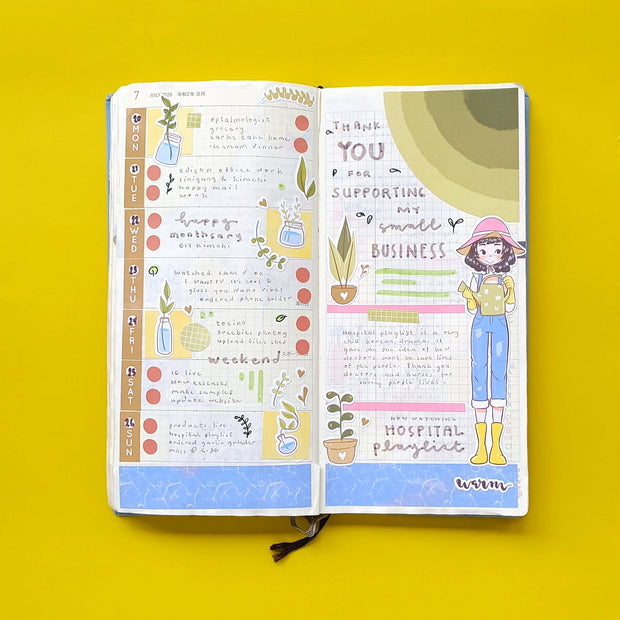 7 JULY 2020 令和2年 文月
20 MON
optalmologist
grocery
cakes take home
ice cream dinner
21 TUE
edison office work
sinigang & kimchi
happy mail
work
22 WED
happy
monthsary
23 THU
watched
ordered phone holder
24 FRI
tocino
freebies photoy
upload files shop
weekend
スポーツの日
25 SAT
IG live
new releases
make samples
update website
26 SUN
products live
hospital playlist
ordered garlic grinder
mass @ 4:30
THANK
YOU
FOR
SUPPORTING
MY
small
BUSINESS
Hospital playlist is a very
chill korean drama. It
gave me the idea of how
doctors want to save lives
of the people. Thank you
doctors and nurses for
saving people lives.
NOW WATCHING
HOSPITAL
playlist
warm